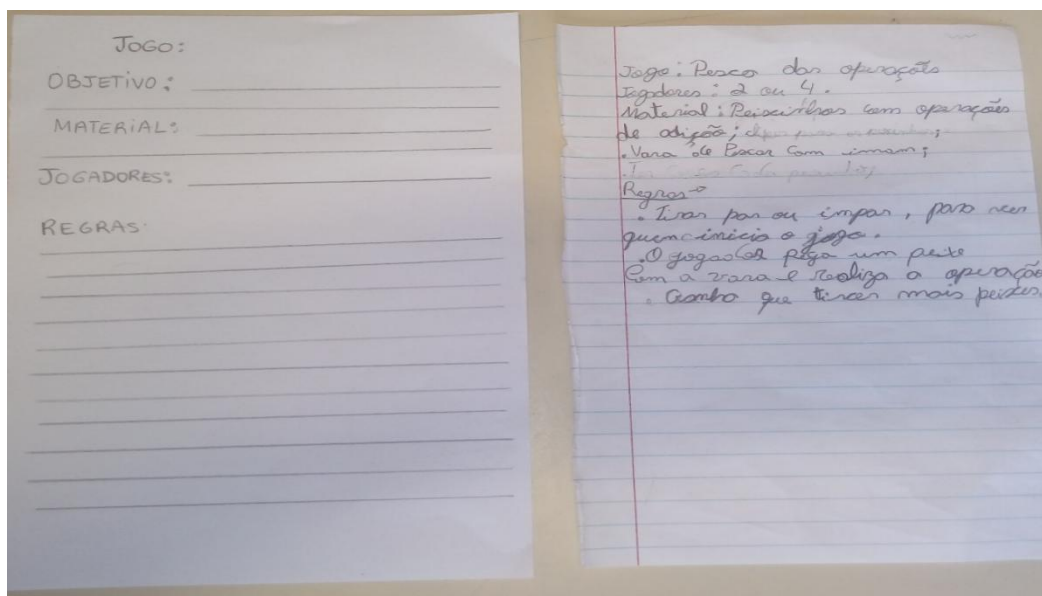 JOGO:
OBJETIVO:
MATERIAL:
JOGADORES:
REGRAS:
Jogo: Pesca das operações
Jogadores: 2 ou 4.
Material: Peixinhos com operações
de adição;
. Vara de Pescar com imam;
Regras
. Tirar par ou impar, para ver
quem inicia o jogo.
. O jogador pega um peixe
Com a vara e realiza a operação
. Ganha que tirar mais peixes.